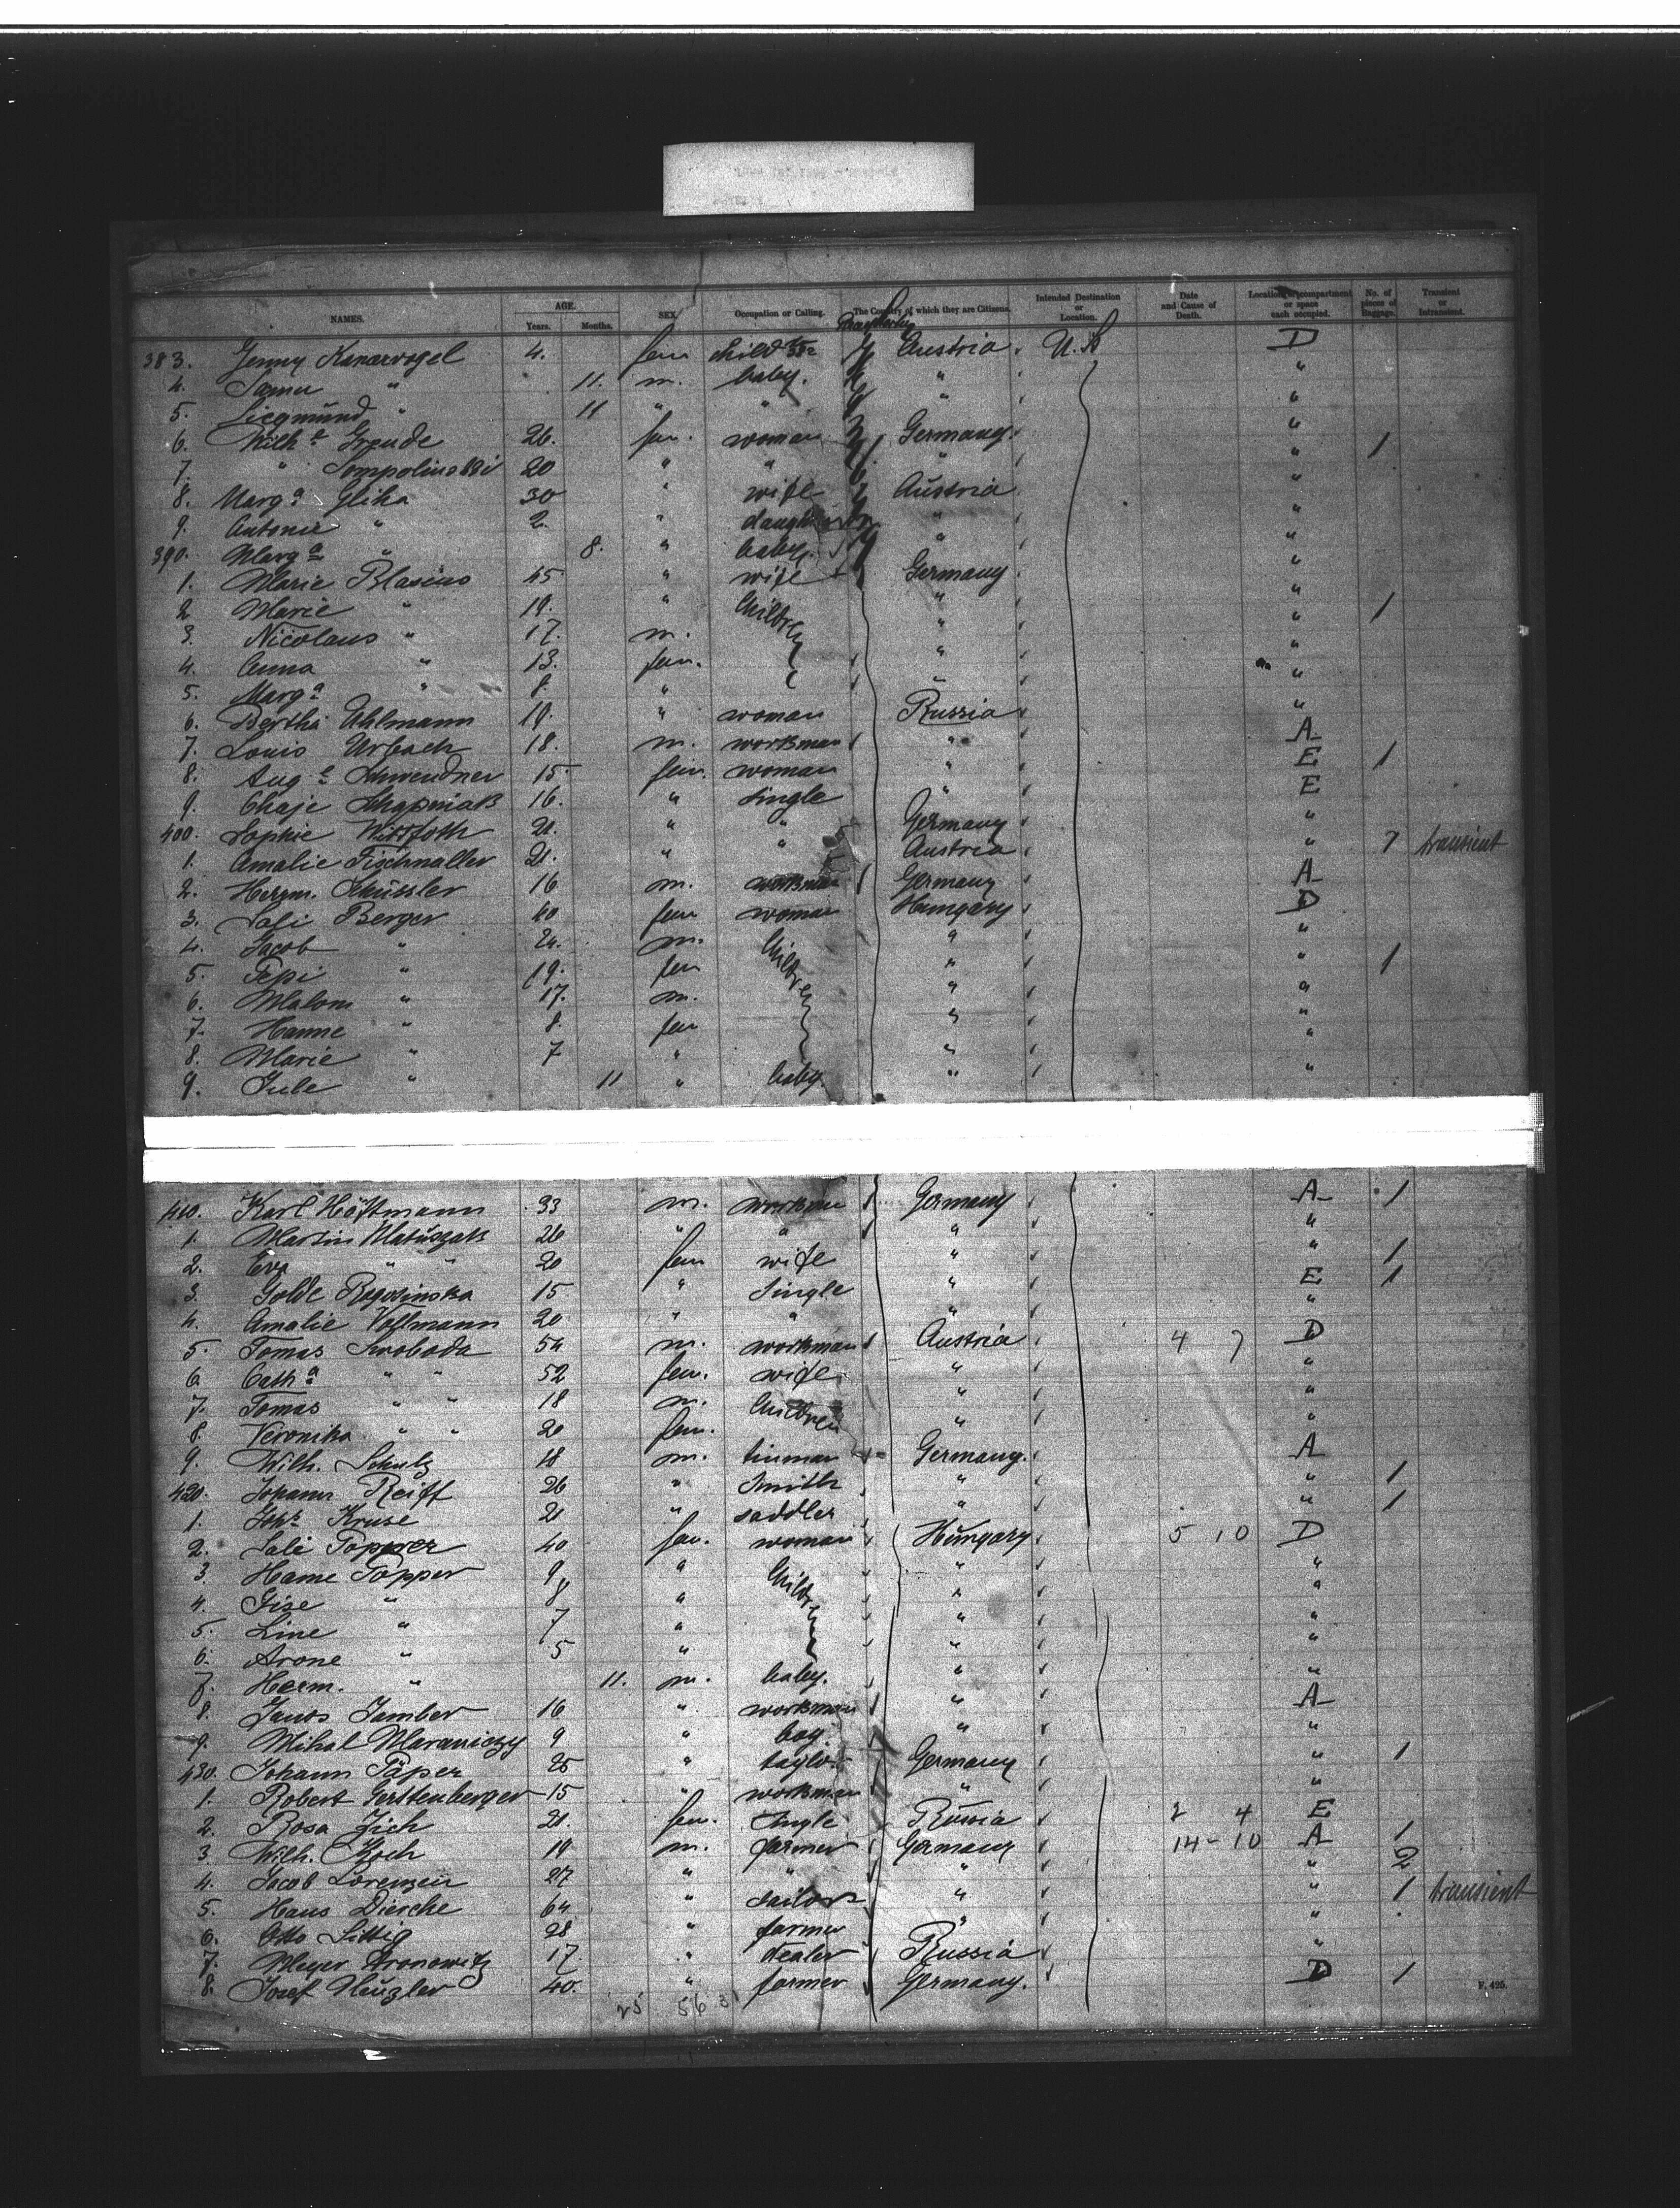 NAMES. AGE. Years. Months. SEX. Occupation or Calling. The Country of which they are Citizens. Intended Destination or Location. Date and Cause of Death. Location of compartment or space each occupied. No. of pieces of Baggage. Transient or Intransient.
383. Jenny Kanarvogel 4. fem child Austria U. S. D
4. Samu " 11. m. baby. " "
5. Siegmund " 11 " " " "
6. Wilh.e Freude 26. fem. woman Germany " 1
7. " Sompolinski 20 " " " "
8. Marg.a Gliha 30 " wife Austria "
9. Antonie " 2. " daughter " "
390. Marg.a " 8. " baby. " "
1. Marie Blasius 45 " wife Germany "
2 Marie " 19. " Children " " 1
3. Nicolaus " 17. m. " "
4. Anna " 13. fem. " "
5. Marg.a " 8. " " "
6. Bertha Uhlmann 19. " woman Russia "
7. Louis Urbach 18. m. workman " A
8. Aug.e Schwendner 15. fem. woman " E 1
9. Chaje 16. " single " E
400. Sophie Wittfoth 21. " " Germany "
1. Amalie Tischnaller 21. " " Austria " 7 transient
2. Herrm. Schüssler 16 m. workman Germany A
3. Sali Berger 40 fem woman Hungary D
4. Jacob " 24. m. Children " "
5. Pepi " 19. fem " " 1
6. Malom " 17. m. " "
7. Hanne " 8. fem " "
8. Marie " 7 " " "
9. Jule " 11 " baby. " "
410. Karl Höftmann 33 m. workman Germany A 1
1. Martin Matuszak 26 " " " "
2. Eva " " 20 fem wife " " 1
3. Golde Rogosinska 15 " Single " E 1
4. Amalie Voltmann 20 " " " "
5. Tomas Swoboda 54 m. workman Austria 4 7 D
6 Cath.a " " 52 fem. wife " "
7. Tomas " " 18 m. Children " "
8. Veronika " " 20 fem. " "
9. Wilh. Schulz 18 m. tinman Germany. A
420. Johann Reiff 26 " Smith " " 1
1. Joh.s Kruse 21 " saddler " " 1
2. Sali Popper 40 fem. woman Hungary 5 10 D
3. Hanne Popper 9 " Children " "
4. Gise " 8 " " "
5. Line " 7 " " "
6. Arone " 5 " " "
7. Herm. " 11. m. baby. " "
8. Janos Jamber 16 " workman " A
9. Mihal Maraniczy 9 " boy. " "
430. Johann Päper 25 " taylor Germany " 1
1. Robert Gerttenberger 15 " workman " "
2. Rosa Zich 21. fem. Single Russia 2 4 E
3. Wilh. Koch 19 m. farmer Germany 14-10 A 1
4. Jacob Lorenzen 27 " " " " 2
5. Hans Dierche 64 " sailor " " 1 transient
6. Otto Sittig 28 " farmer " "
7. Meyer Aronowitz 17. " dealer Russia "
8. Josef Heuzler 40. " farmer Germany. D 1
25 56 3
F. 425.